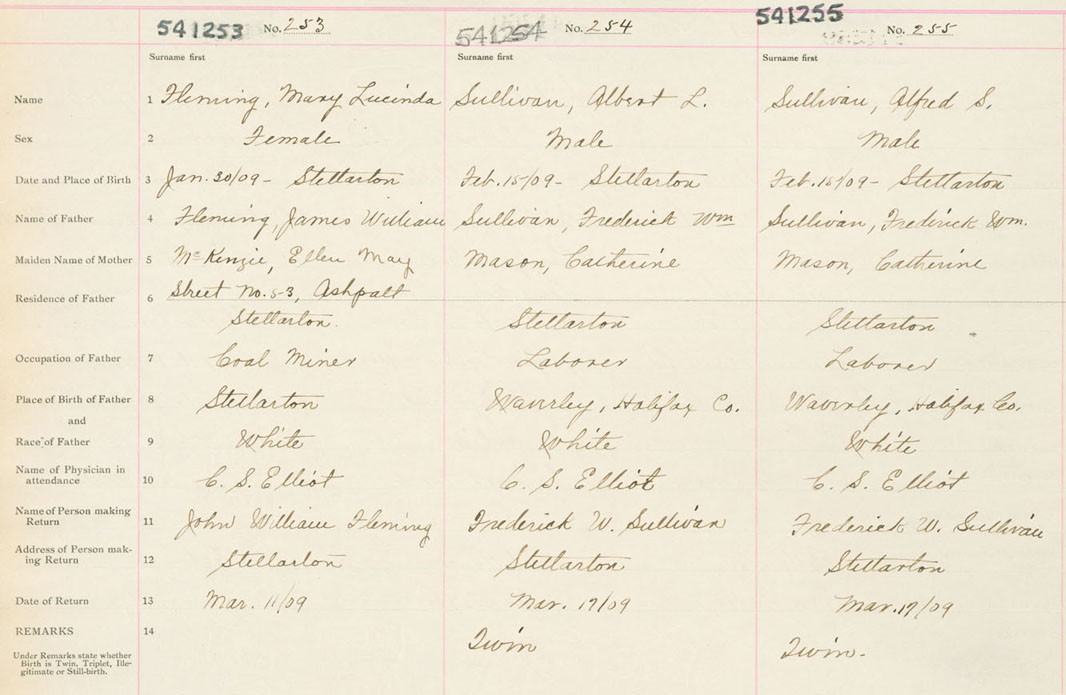 541253 No. 253 541254 No. 254 541255 No. 255
Surname first Surname first Surname first
Name 1 Fleming, Mary Lucinda Sullivan, Albert L. Sullivan, Alfred S.
Sex 2 Female Male Male
Date and Place of Birth 3 Jan. 30/09 - Stellarton Feb. 15/09 - Stellarton Feb. 15/09 - Stellarton
Name of Father 4 Fleming, James William Sullivan, Frederick Wm Sullivan, Frederick Wm.
Maiden Name of Mother 5 McKenzie, Ellen May Mason, Catherine Mason, Catherine
Residence of Father 6 Street No. 53, Ashpalt
Stellarton. Stellarton Stellarton
Occupation of Father 7 Coal Miner Laborer Laborer
Place of Birth of Father 8 Stellarton Waverley, Halifax Co. Waverley, Halifax Co.
and
Race of Father 9 White White White
Name of Physician in
attendance 10 C. S. Elliot C. S. Elliot C. S. Elliot
Name of Person making
Return 11 John William Fleming Frederick W. Sullivan Frederick W. Sullivan
Address of Person mak-
ing Return 12 Stellarton Stellarton Stellarton
Date of Return 13 Mar. 11/09 Mar. 17/09 Mar. 17/09
REMARKS 14 Twin Twin.
Under Remarks state whether
Birth is Twin, Triplet, Ille-
gitimate or Still-birth.